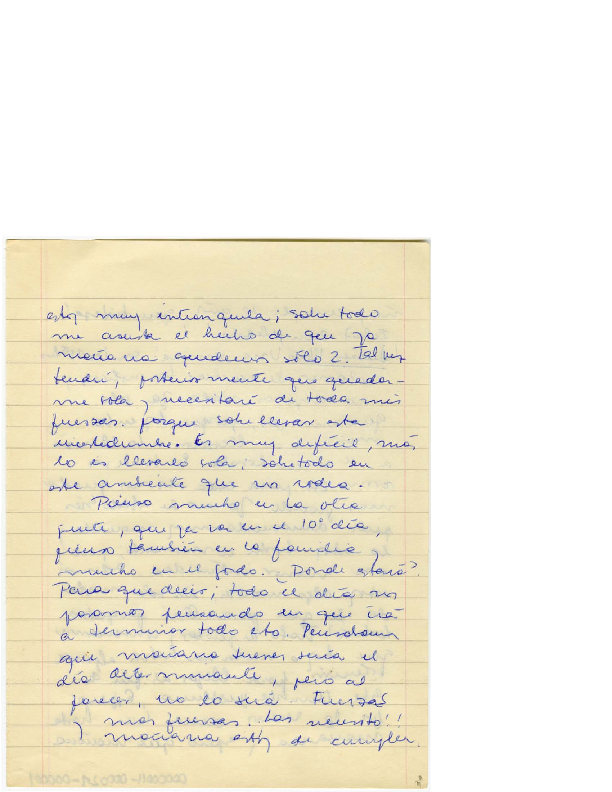 estoy muy intranquila; sobre todo
me asusta el hecho de que ya
mañana quedemos sólo 2. Tal vez
tendré, posteriormente que quedar-
me sola y necesitaré de toda mis
fuerzas. porque sobrellevar esta
incertidumbre. Es muy difícil, más
lo es llevarlo sola, sobretodo en
este ambiente que nos rodea.
Pienso mucho en la otra
gente, que ya va en el 10° día,
pienso también en la familia y
mucho en el gordo. Donde estará?
Para que decir; todo el día nos
pasamos pensando en que irá
a terminar todo esto. Pensabamos
que mañana jueves sería el
día determinante, pero al
parecer, no lo será. Fuerzas
y mas fuerzas. Las necesito!!
mañana estoy de cumples.